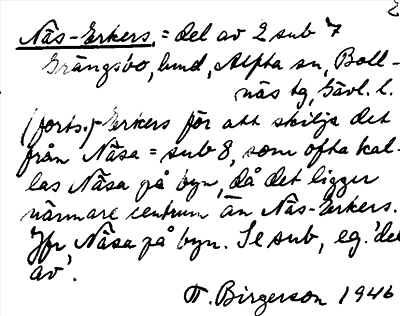 Näs-Erkers. = del av 2 sub 7
Grängsbo, lund, Alfta sn, Boll-
näs tg, Gävl. l.
(forts.)-Erkers för att skilja det
från Näsa = sub 8, som ofta kal-
las Näsa på byn, då det ligger
närmare centrum än Näs-Erkers.
Jfr Näsa på byn. Se sub, eg. 'del
av'.
T. Birgerson 1946